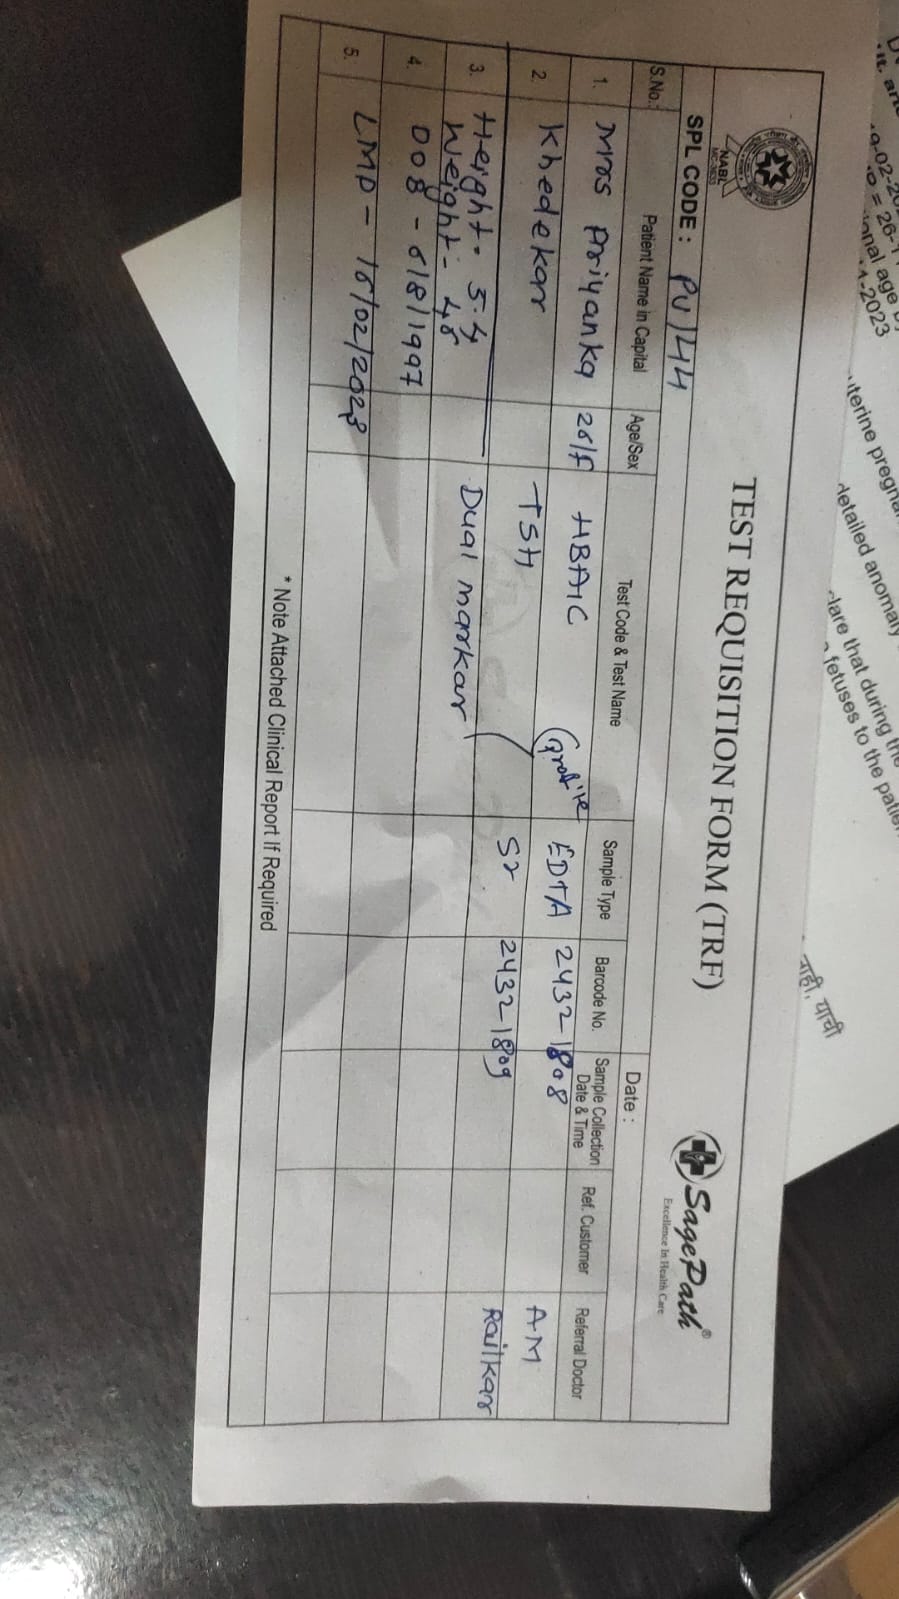 TEST REQUISITION FORM (TRF)
NABL
SagePath®
Excellence In Health Care
SPL CODE : PU/44
Date :
S.No. Patient Name in Capital Age/Sex Test Code & Test Name Sample Type Barcode No. Sample Collection Date & Time Ref. Customer Referral Doctor
1. Mrs Priyanka 26/F HBA1C EDTA 24321808 A.M
2. Khedekar TSH (profile Sr 24321809 Railkar
3. Height - 5.4 Dual markar
Weight - 48
4. DOB - 6/8/1997
5. LMP - 16/02/2023
* Note Attached Clinical Report If Required
uterine pregna
detailed anomaly
clare that during the
fetuses to the patien
नाही, याची